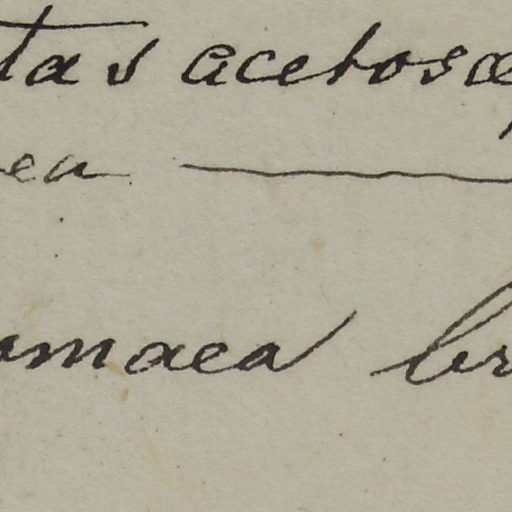 tas acetosæ
ea
maea br